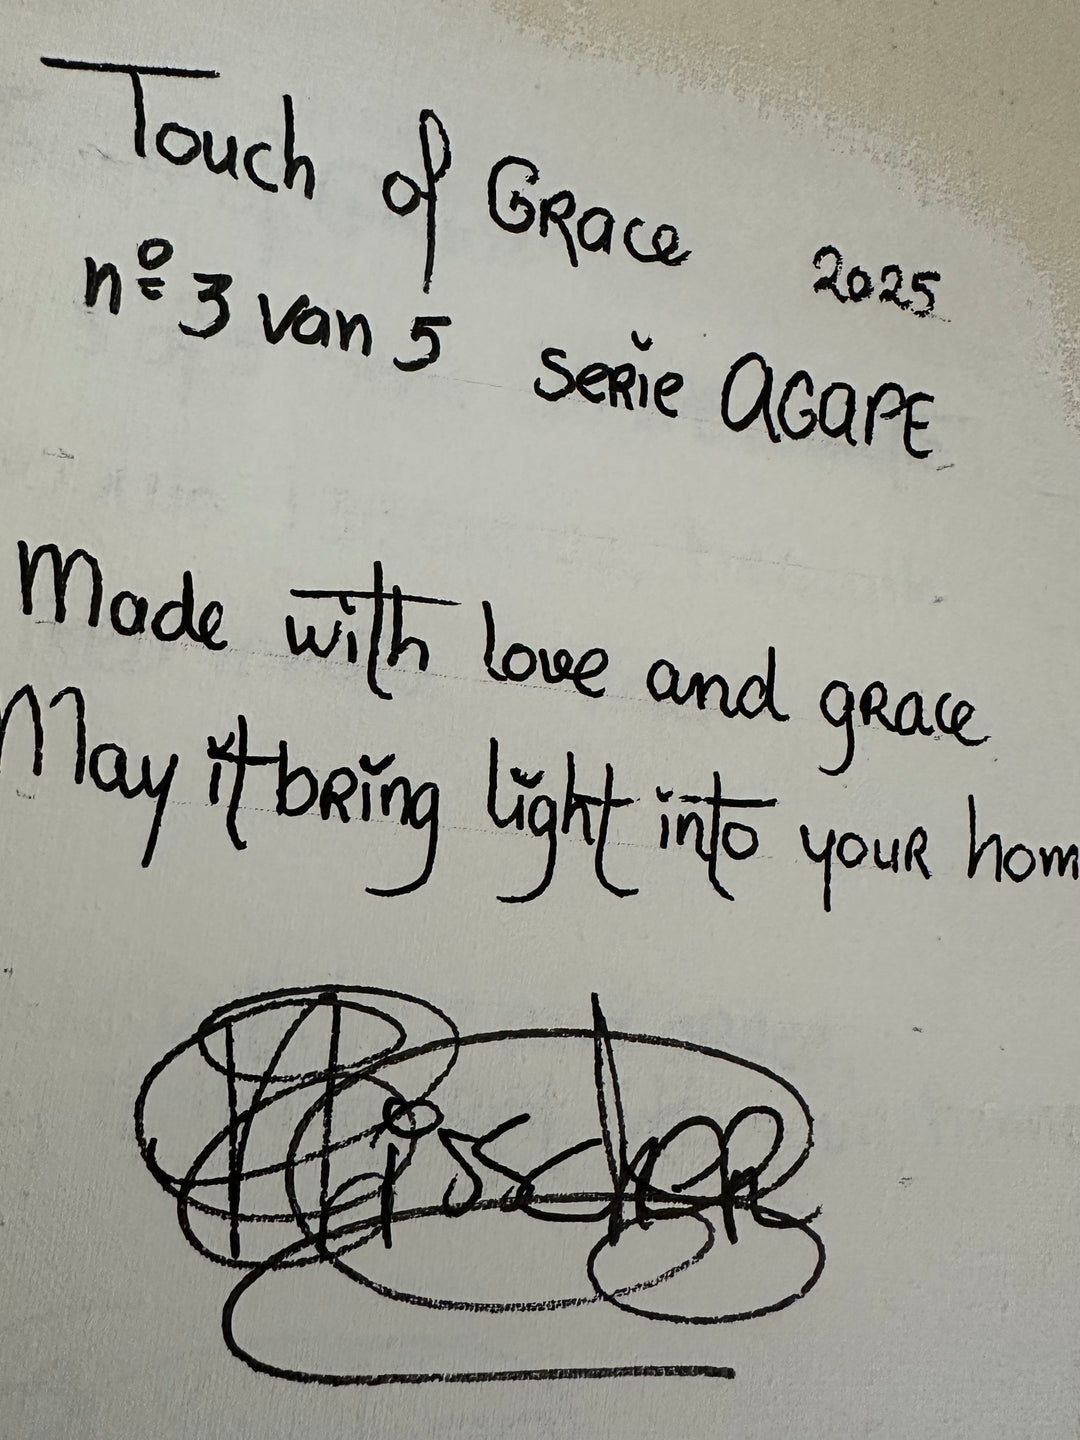 Touch of Grace 2025
nº 3 van 5 serie AGAPE
Made with love and grace
May it bring light into your hom